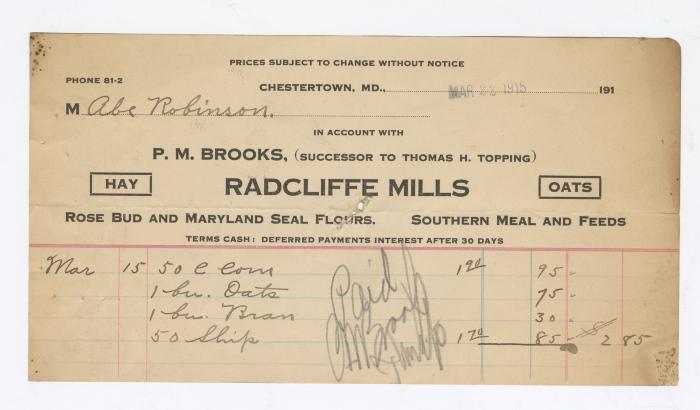 PRICES SUBJECT TO CHANGE WITHOUT NOTICE
PHONE 81-2
CHESTERTOWN, MD., MAR 22 1915 191
M Abe Robinson.
IN ACCOUNT WITH
P. M. BROOKS, (SUCCESSOR TO THOMAS H. TOPPING)
HAY RADCLIFFE MILLS OATS
ROSE BUD AND MARYLAND SEAL FLOURS. SOUTHERN MEAL AND FEEDS
TERMS CASH: DEFERRED PAYMENTS INTEREST AFTER 30 DAYS
Mar 15 50 C Corn 1 90 95
1 bu. Oats 75
1 bu. Bran 30
50 Ship 1 70 85 $ 2 85
Paid
Brooks